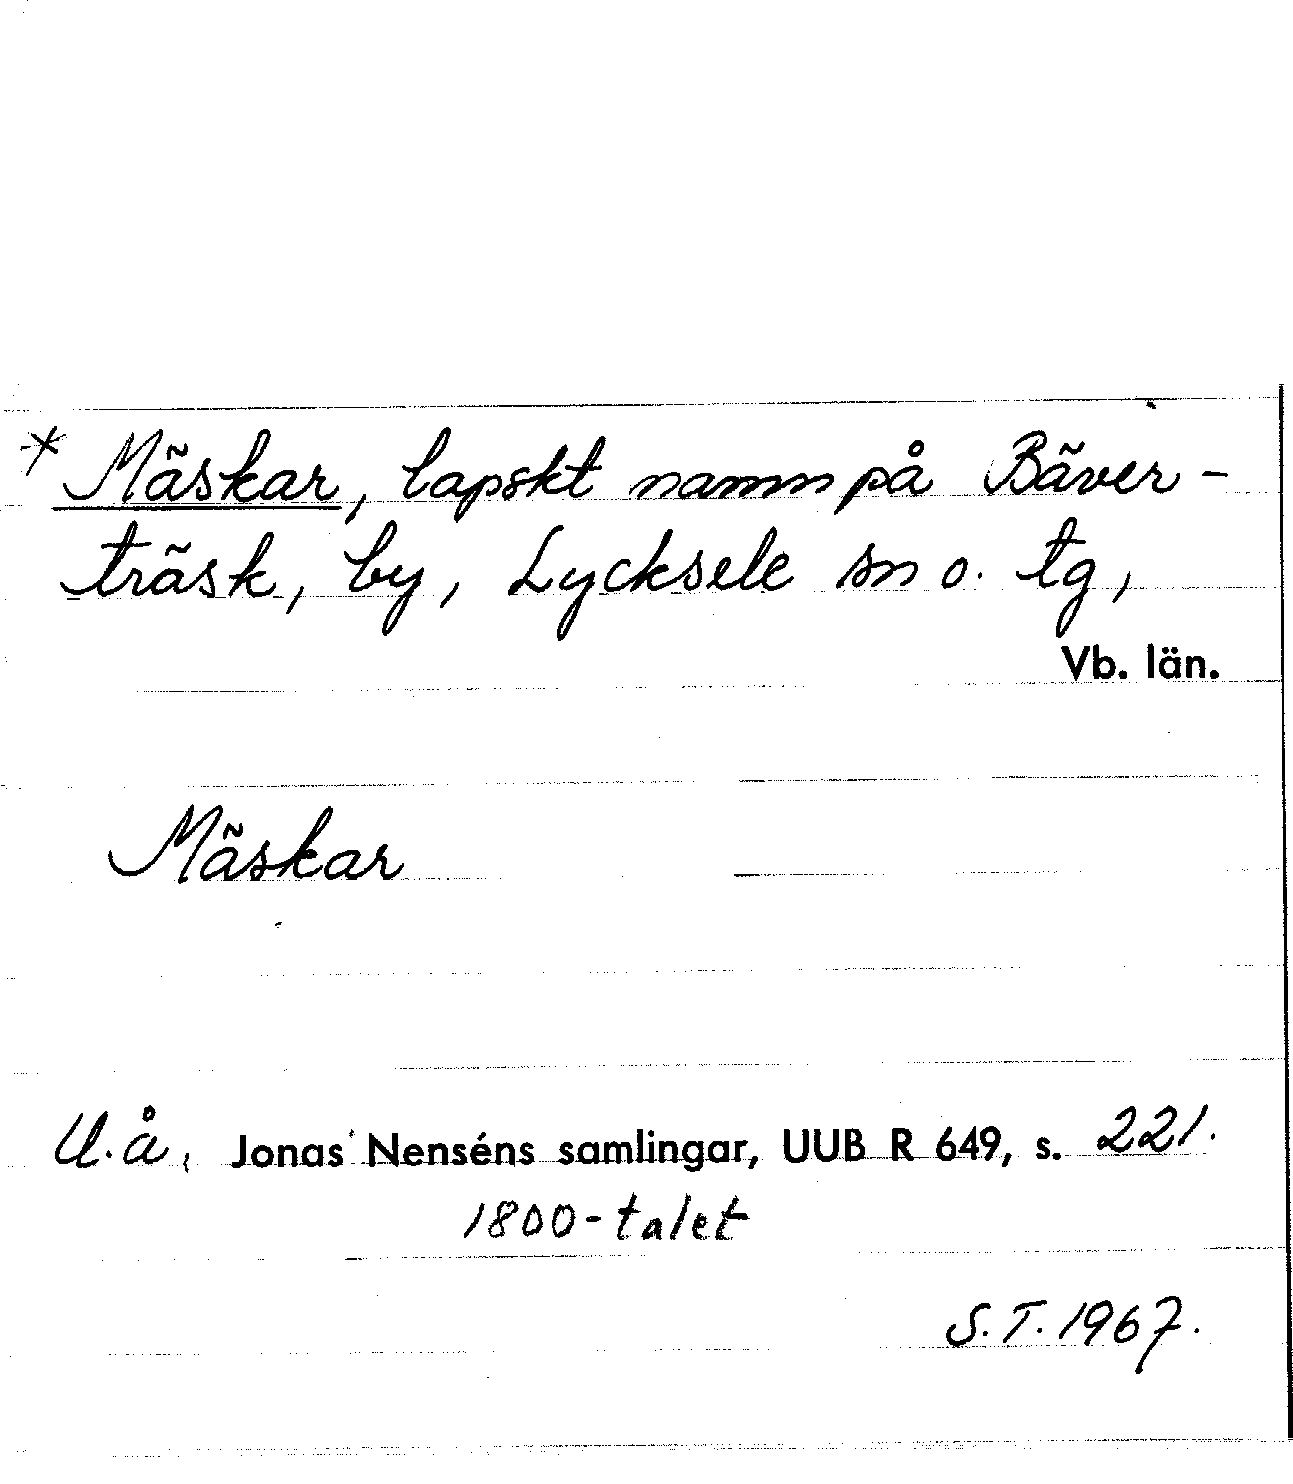 * Mäskar, lapskt namn på Bäver-
träsk, by, Lycksele sn o. tg,
Vb. län.
Mäskar
U.å, Jonas Nenséns samlingar, UUB R 649, s. 221.
1800-talet
S.T. 1967.